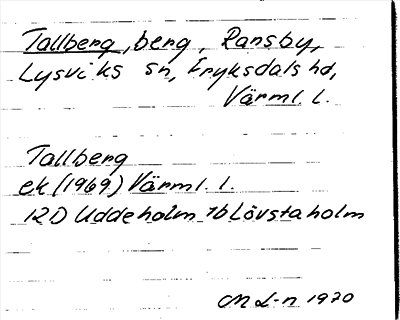 Tallberg, berg, Ransby,
Lysviks sn, Fryksdals hd,
Värml. l.
Tallberg
ek (1969) Värml. l.
12D Uddeholm 7b Lövstaholm
M L-n 1970